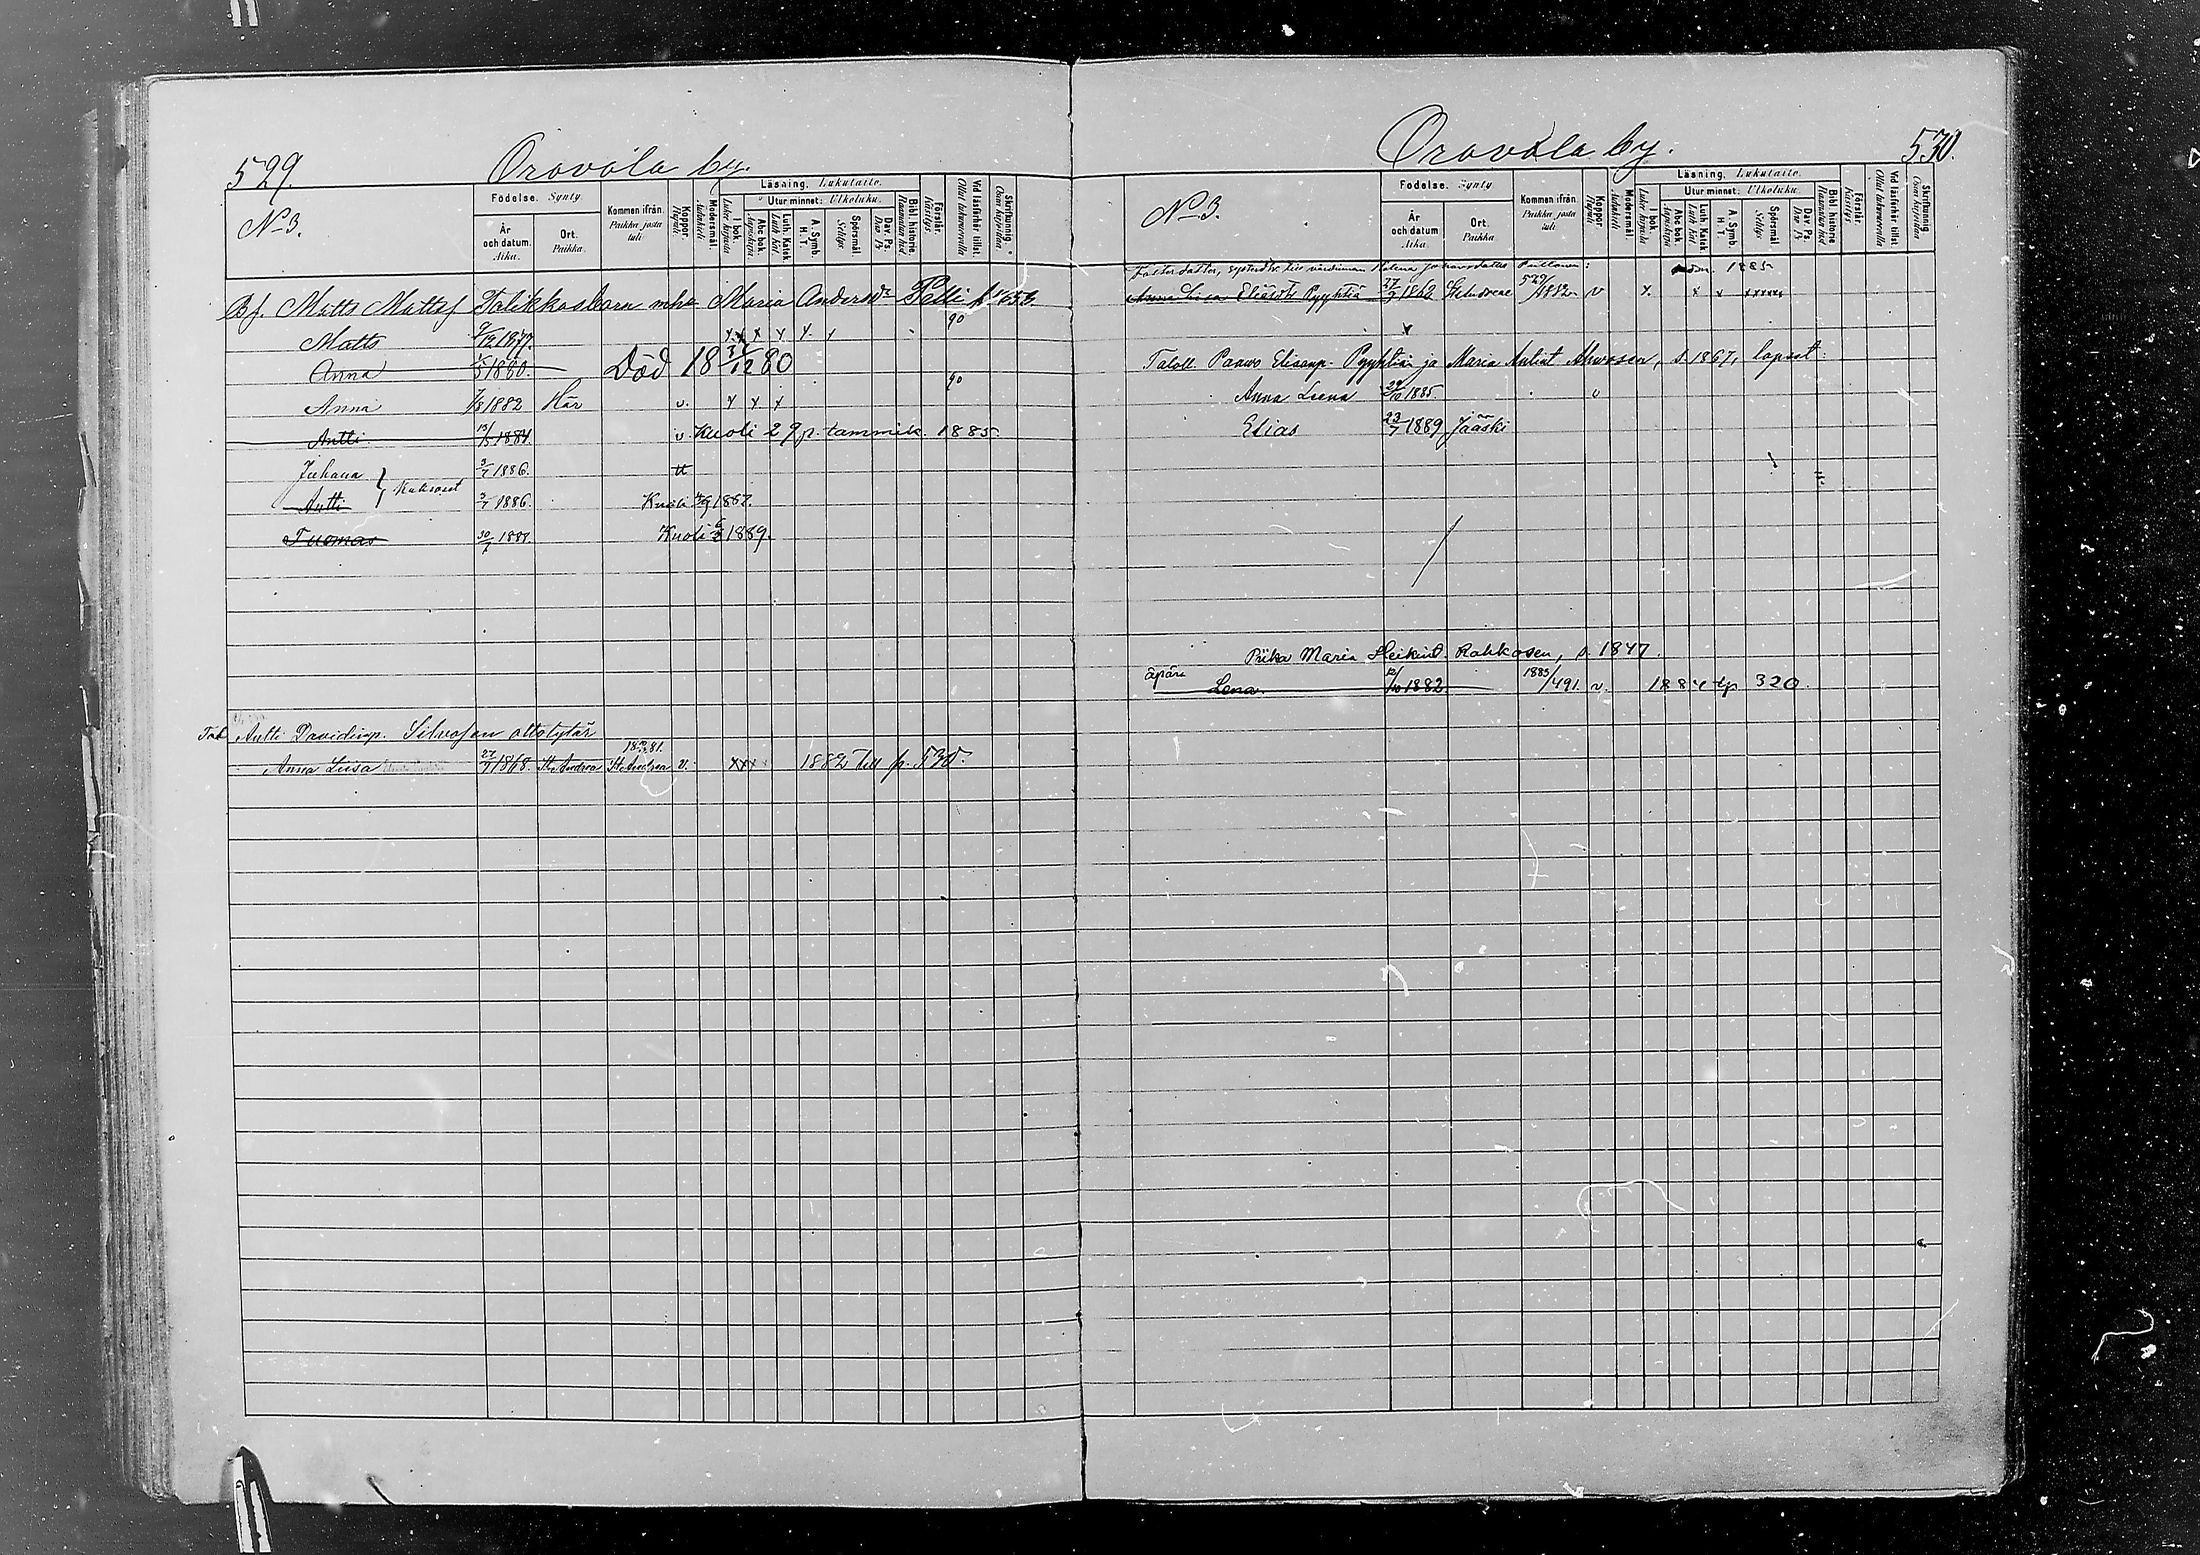 529.
Oravala by.
No 3.
Födelse. Synty
År och datum. Aika.
Ort. Paikka.
Kommen ifrån. Paikka josta tuli.
Koppor. Rupuli
Modersmål. Äidinkieli
Läsning. Lukutaito.
I bok. Lukee kirjasta
Utur minnet: Ulkoluku.
Abc bok. Aapiskirja
Luth. Katek. Luth. Kat.
A. Symb. H. T.
Spörsmål Selitys
Dav. Ps. Daw. Ps
Bibl. historie. Raamatun hist.
Förstår. Käsitys
Vid läsförhör tillst. Ollut lukuwuorolla
Skriftkunnig Osaa kirjoittaa
Bf. Matts Mattsf Talikka barn m. h. Maria Andersdr Pelli
Matts 1877. x x x x x 90
Anna 1880. Död 18 80
Anna 1882 Här v. x x x 90
Antti 13/5 1884. v. Kuoli 29 p. tammik. 1885.
Juhana 3/7 1886.
Kaksoset
Antti 3/7 1886. Kuoli
Tuomas 30/ Kuoli 1889.
Antti Davidinp. ottotytär
Anna Liisa 27/ 1868. St. Andrea St. Andrea v. xxx 1882 till p. 530.
530.
Oravala by.
No 3.
Födelse. Synty
År och datum. Aika.
Ort. Paikka
Kommen ifrån. Paikka josta tuli.
Koppor. Rupuli
Modersmål. Äidinkieli
Läsning. Lukutaito.
I bok. Lukee kirjasta
Utur minnet: Ulkoluku.
Abc bok. Aapiskirja
Luth. Katek. Luth. Kat.
A. Symb. H. T.
Spörsmål Selitys
Dav. Ps. Daw. Ps
Bibl historie Raamatun hist
Förstår. Käsitys
Vid läsförhör tillst. Ollut lukuwuorolla
Skriftkunnig Osaa kirjoittaa
Fosterdotter, 1885
Anna Lisa Eliasdtr Pyyhtiä 27/ 1868 529/1882. v x. x x xxxxx
Taloll. Paawo Eliaanp. Pyyhtiän ja Maria Antint Ahwosen, s. 1867, lapset:
Anna Leena 29/10 1885 v
Elias 23/7 1889 Jääski
Piika Maria Heikind. Rakkosen, s. 1847.
äpärä
Lena. 1882. 1883/491. v. 1884 tp 320.